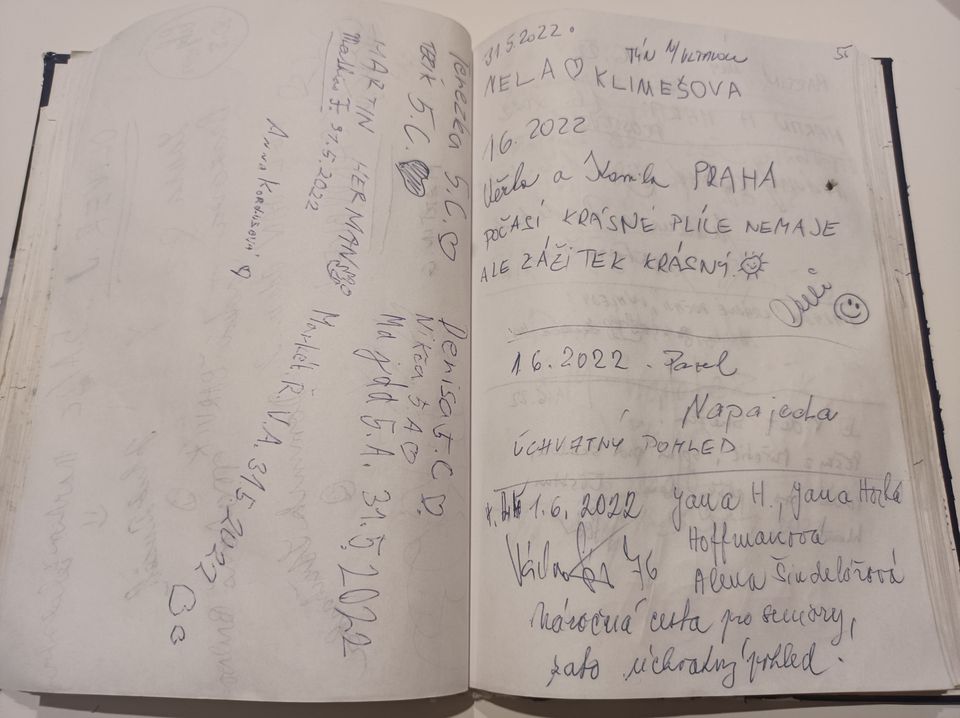 Terezka 5.C.
5.C.
MARTIN HERMAN
31.5.2022
Denisa 5.C
Nikča 5.A
Majda 5.A. 31.5.2022
Markét Ř. V.A. 31.5.2022
31.5.2022.
TÝN N/VLTAVOU
55
NELA KLIMEŠOVA
1 6. 2022
Věrka a Kamila PRAHA
POČASÍ KRÁSNÉ PLÍCE NEMAJE
ALE ZÁŽITEK KRÁSNÝ.
1.6.2022. Pavel
Napajedla
ÚCHVATNÝ POHLED
1.6.2022 Jana H., Jana Horká
Hoffmanová
76 Alena Šindelářová
Náročná cesta pro seniory,
zato úchvatný pohled.